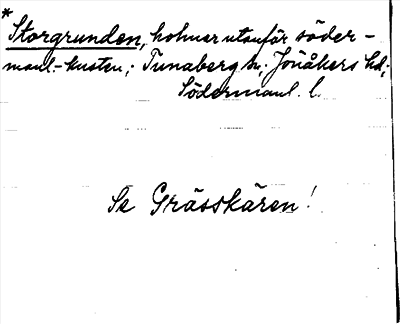 * Storgrunden, holmar utanför söder-
manl.-kusten; Tunaberg sn; Jönåkers hd;
Södermanl. l.
Se Grässkären!